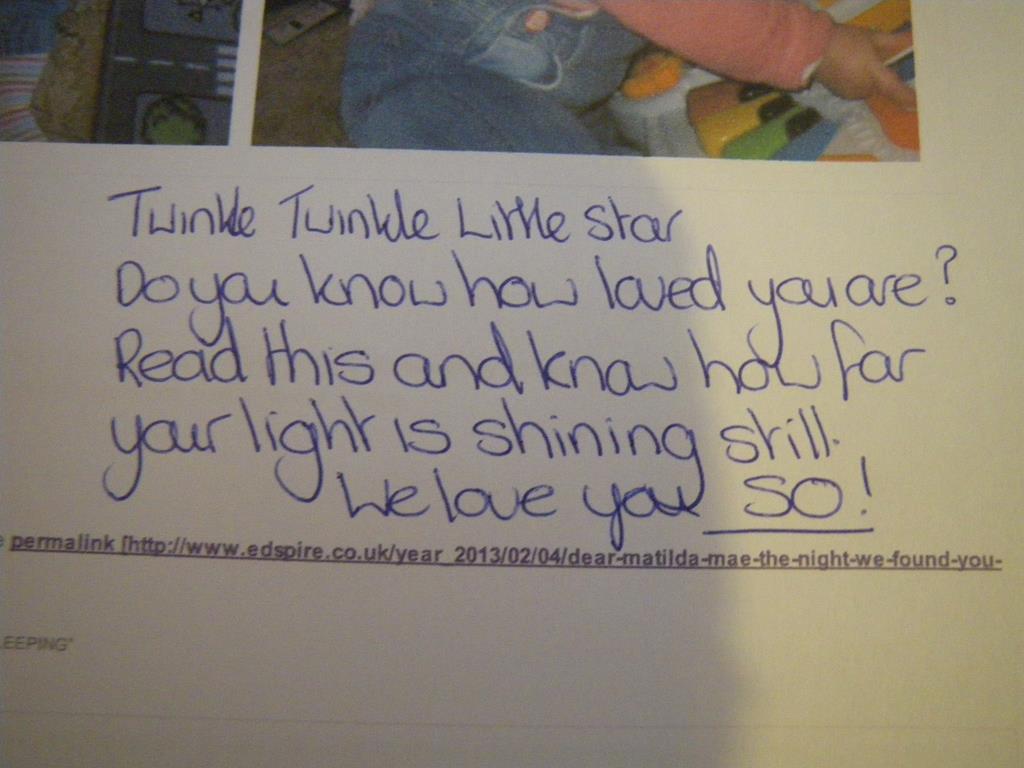 Twinkle Twinkle Little Star
Do you know how loved you are?
Read this and know how far
your light is shining still.
We love you SO!
permalink [http://www.edspire.co.uk/year_2013/02/04/dear-matilda-mae-the-night-we-found-you-
EEPING"